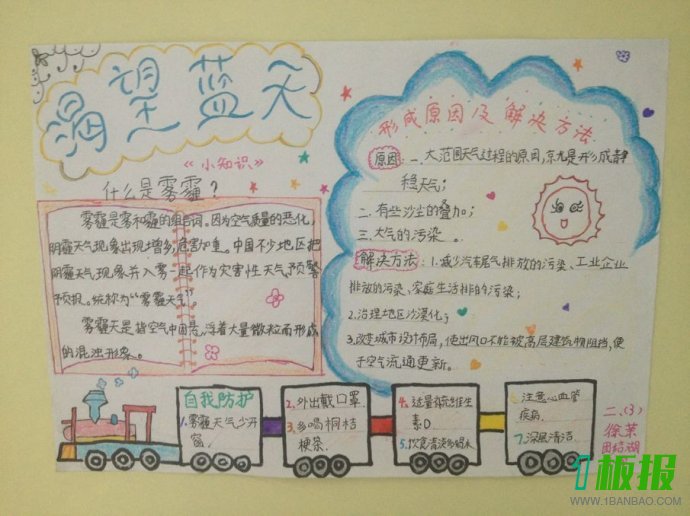 渴望蓝天
《小知识》
什么是雾霾？
雾霾是雾和霾的组合词。因为空气质量的恶化，
阴霾天气现象出现增多，危害加重。中国不少地区把
阴霾天气现象并入雾一起作为灾害性天气预警
预报。统称为“雾霾天气”。
雾霾天是指空气中因悬浮着大量微粒而形成
的混浊形象。
形成原因及解决方法
原因：一、大范围天气过程的原因，尤是形成
稳天气；
二.有些沙尘的叠加；
三.大气的污染。
解决方法：1.减少汽车尾气排放的污染、工业企业
排放的污染、家庭生活排的污染；
2.治理地区沙漠化；
3.改变城市设计布局，使出风口不能被高层建筑物阻挡，使
于空气流通更新。
自我防护
1.雾霾天气少开
窗.
2.外出戴口罩.
3.多喝桐桔
梗茶.
4.适量补充维生
素D
5.饮食清淡多喝水
注意心血管
疾病.
7.深层清洁.
二.(3)
徐
团结湖
1板报
WWW.1BANBAO.COM